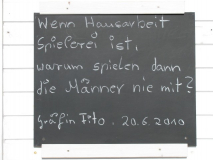 Wenn Hausarbeit
Spielerei ist,
warum spielen dann
die Männer nie mit?
Gräfin Fito, 20.6.2010